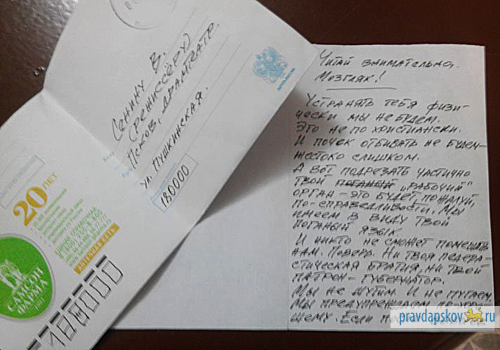 Сенину В.
(режиссёру)
Псков, драмтеатр.
ул. Пушкинская.
180000
20 лет
САМСОН
ФАРМА
180000
Читай внимательно.
Мозгляк!
Устранять тебя физи-
чески мы не будем.
Это не по христиански.
И почек отбивать не будем-
жестоко слишком.
А вот подрезать частично
твой поганый "рабочий"
орган - это будет, пожалуй,
по-справедливости. Мы
имеем в виду твой
поганый язык
И никто не сможет помешать
нам. Поверь. Ни твоя педера-
стическая братия, ни твой
патрон-губернатор.
Мы не шутим и не пугаем
Мы предупреждаем по-хоро-
шему. Если
pravdapskov.ru